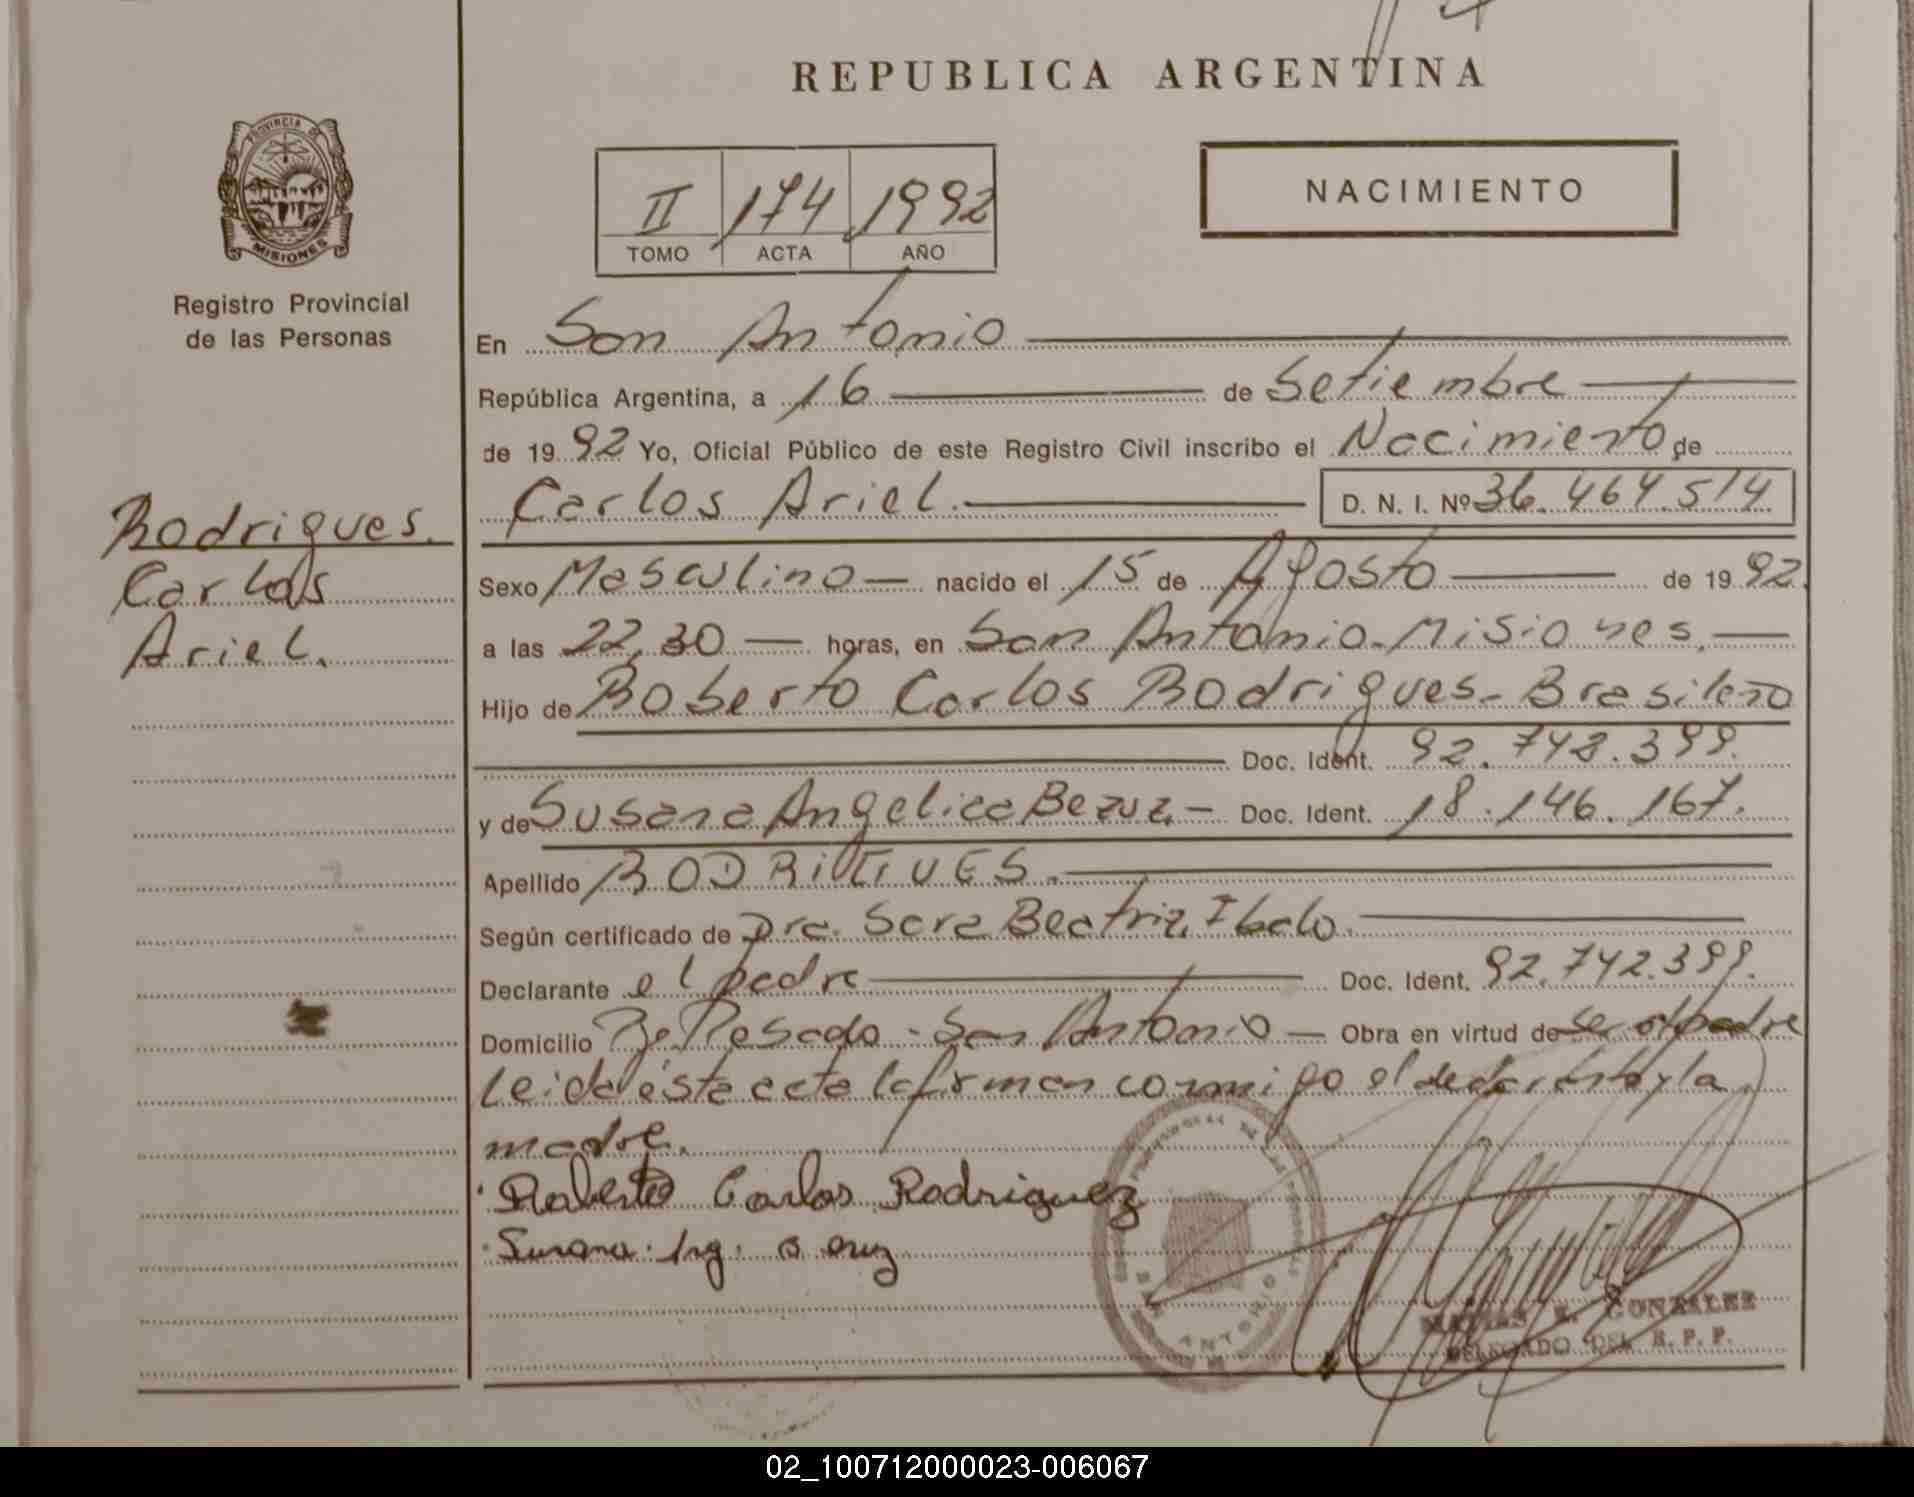 REPUBLICA ARGENTINA
PROVINCIA DE
MISIONES
Registro Provincial
de las Personas
II 174 1992
TOMO ACTA AÑO
NACIMIENTO
En San Antonio
República Argentina, a 16 de Setiembre
de 1992 Yo, Oficial Público de este Registro Civil inscribo el Nacimiento de
Carlos Ariel. D. N. I. Nº 36.464.514
Rodrigues.
Carlos
Ariel.
Sexo Masculino nacido el 15 de Agosto de 1992.
a las 22,30 horas, en San Antonio-Misiones.
Hijo de Roberto Carlos Rodrigues-Brasileño
Doc. Ident. 92.742.399.
y de Susana Angelica Bezuz Doc. Ident. 18.146.167.
Apellido RODRIGUES.
Según certificado de Dra. Sara Beatriz Ibalo.
Declarante el padre Doc. Ident. 92.742.399.
Domicilio Rosado - San Antonio Obra en virtud de ser el padre
Leida ésta acta la firman conmigo el declarante y la
madre.
Roberto Carlos Rodriguez
Susana Ang.
SAN ANTONIO
MISIONES
MATIAS E. GONZALEZ
DELEGADO DEL R. P. P.
02_100712000023-006067